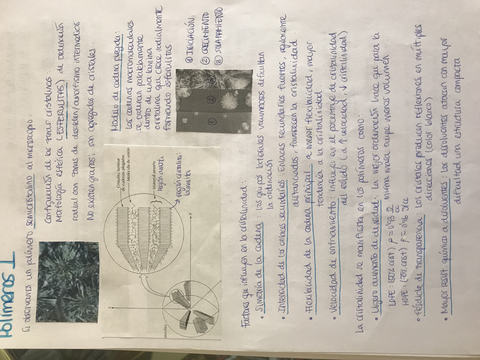 Polímeros I
Si observamos un polímero semicristalino al microscopio:
Combinación de las zonas cristalinas
Morfología esférica (ESFERULITAS) de crecimiento
radial con zonas de desorden/amorfismo intermedias
No existen granos, son agregados de cristales
Modelo de cadena plegada
Las cadenas macromoleculares
se ordenan paralelamente
dentro de una lámina
cristalina que crece radialmente
formando esferulitas
① INICIACIÓN
② CRECIMIENTO
③ SOLAPAMIENTO
Factores que influyen en la cristalinidad:
• Simetría de la cadena: los grupos laterales voluminosos dificultan
la ordenación
• Intensidad de los enlaces secundarios: Enlaces secundarios fuertes, regularmente
distanciados, favorecen la cristalinidad
• Flexibilidad de la cadena principal: a mayor flexibilidad, mayor
tendencia a la cristalinidad
• Velocidad de enfriamiento: influye en el porcentaje de cristalinidad
del sólido (a ↑ velocidad, ↓ cristalinidad)
La cristalinidad se manifiesta en los polímeros como:
• Ligero aumento de densidad: La mejor ordenación hace que para la
misma masa, ocupe menos volumen
• Pérdida de transparencia: Los cristales producen reflexiones en múltiples
direcciones (color blanco)
• Mayor resist. química a disolventes: los disolventes atacan con mayor
dificultad una estructura compacta